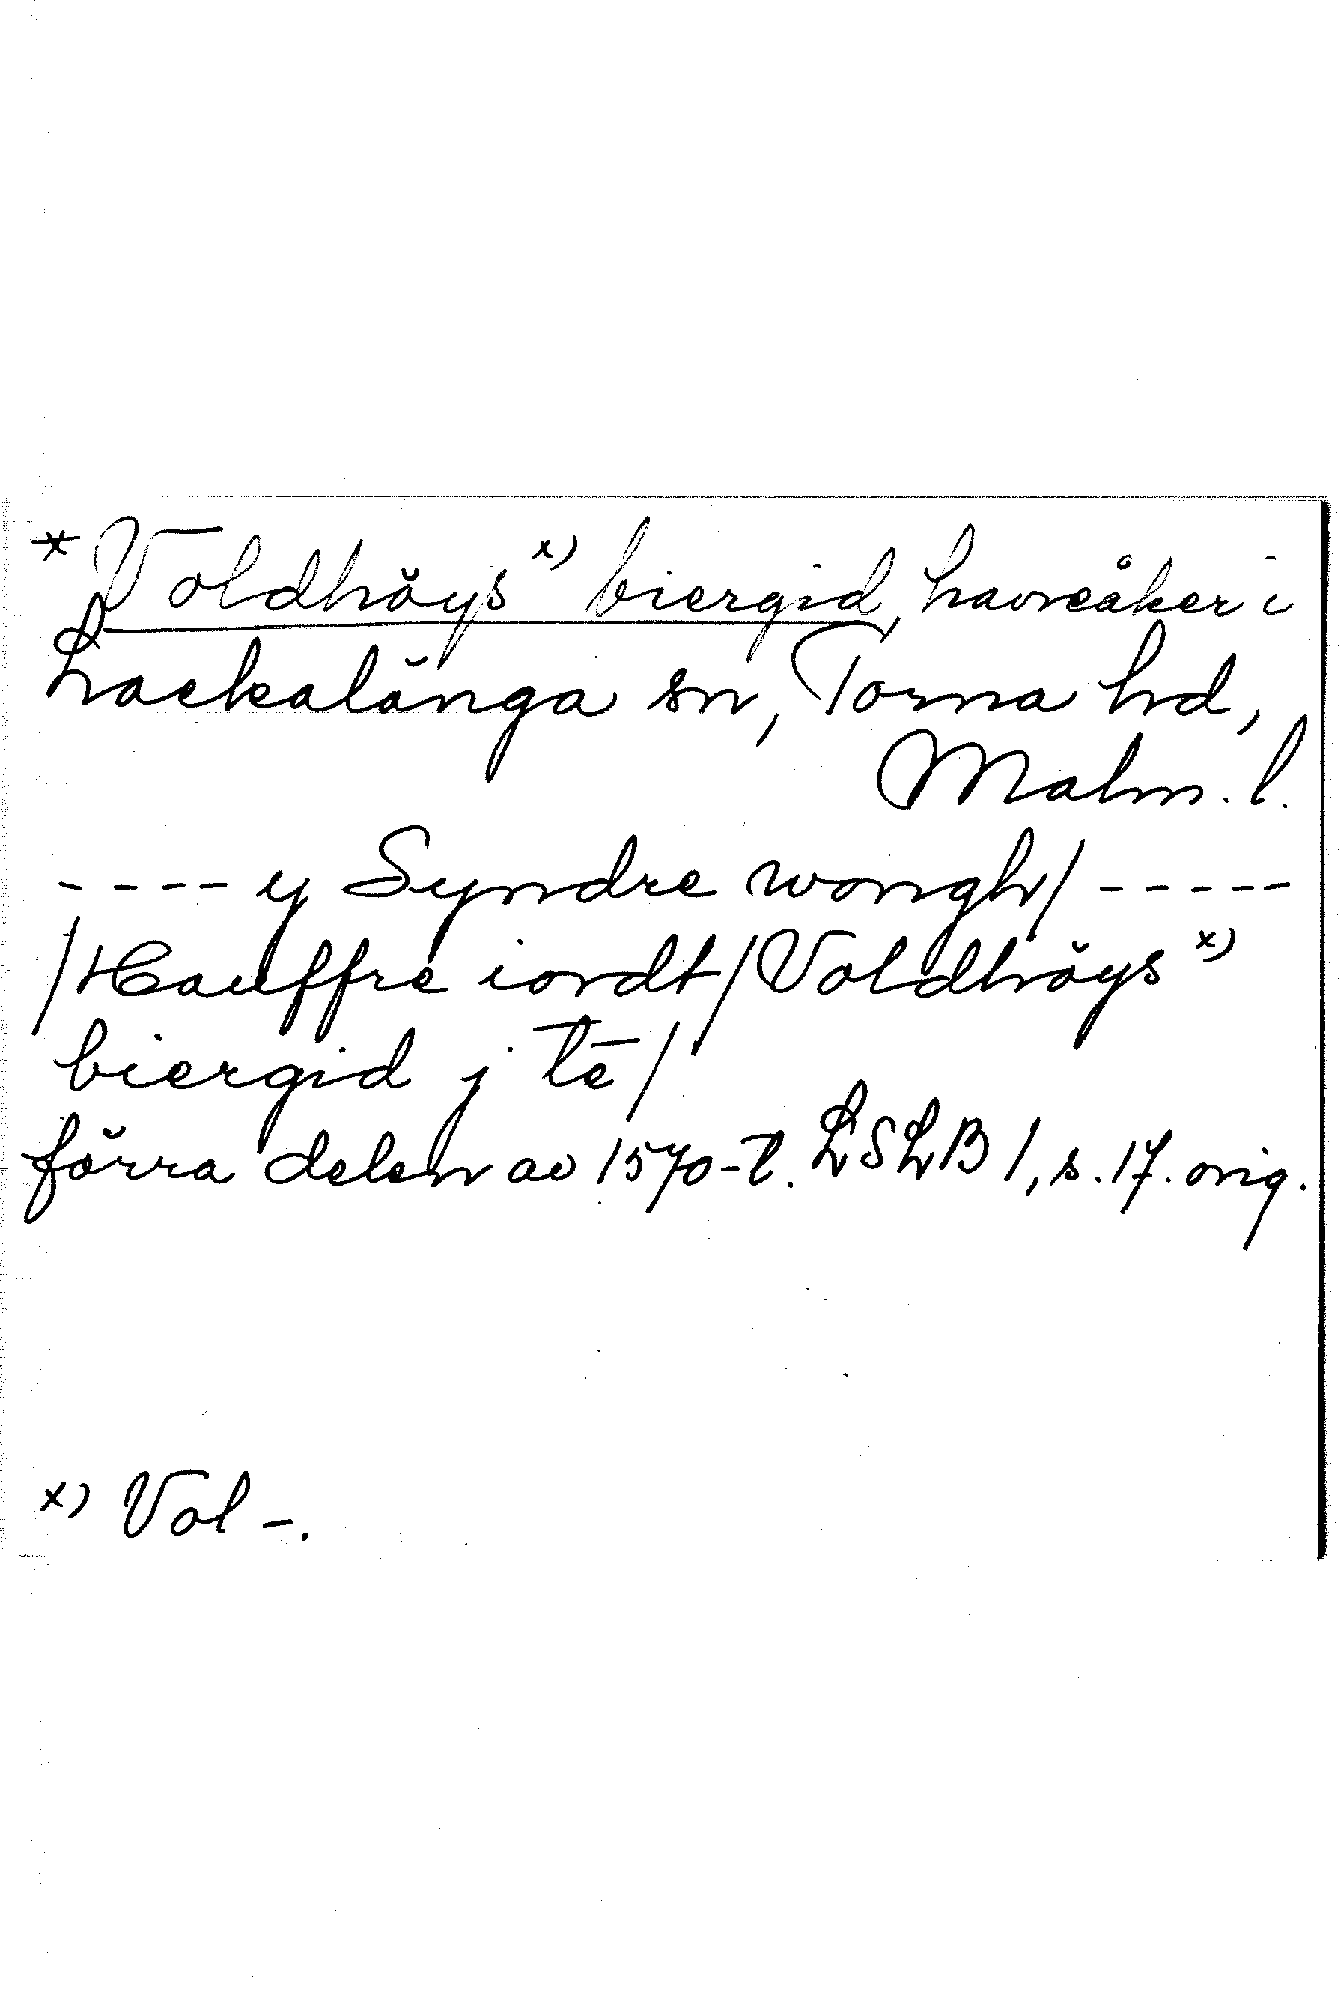 * Voldhöys x) biergid, havreåker i
Lackalänga sn, Torna hd,
Malm. l.
---- y Syndre wongh/ -----
/Hauffre iordt/Voldhöys x)
biergid j tē/
förra delen av 1570-t. LSLB 1, s. 17. orig.
x) Vol -.